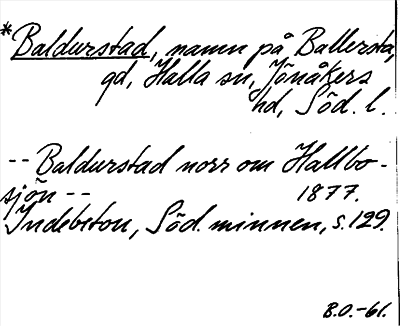 *Baldurstad, namn på Ballersta,
gd, Halla sn, Jönåkers
hd, Söd. l.
-- Baldurstad norr om Hallbo-
sjön -- 1877.
Indebetou, Söd. minnen, s. 129.
B.O.-61.